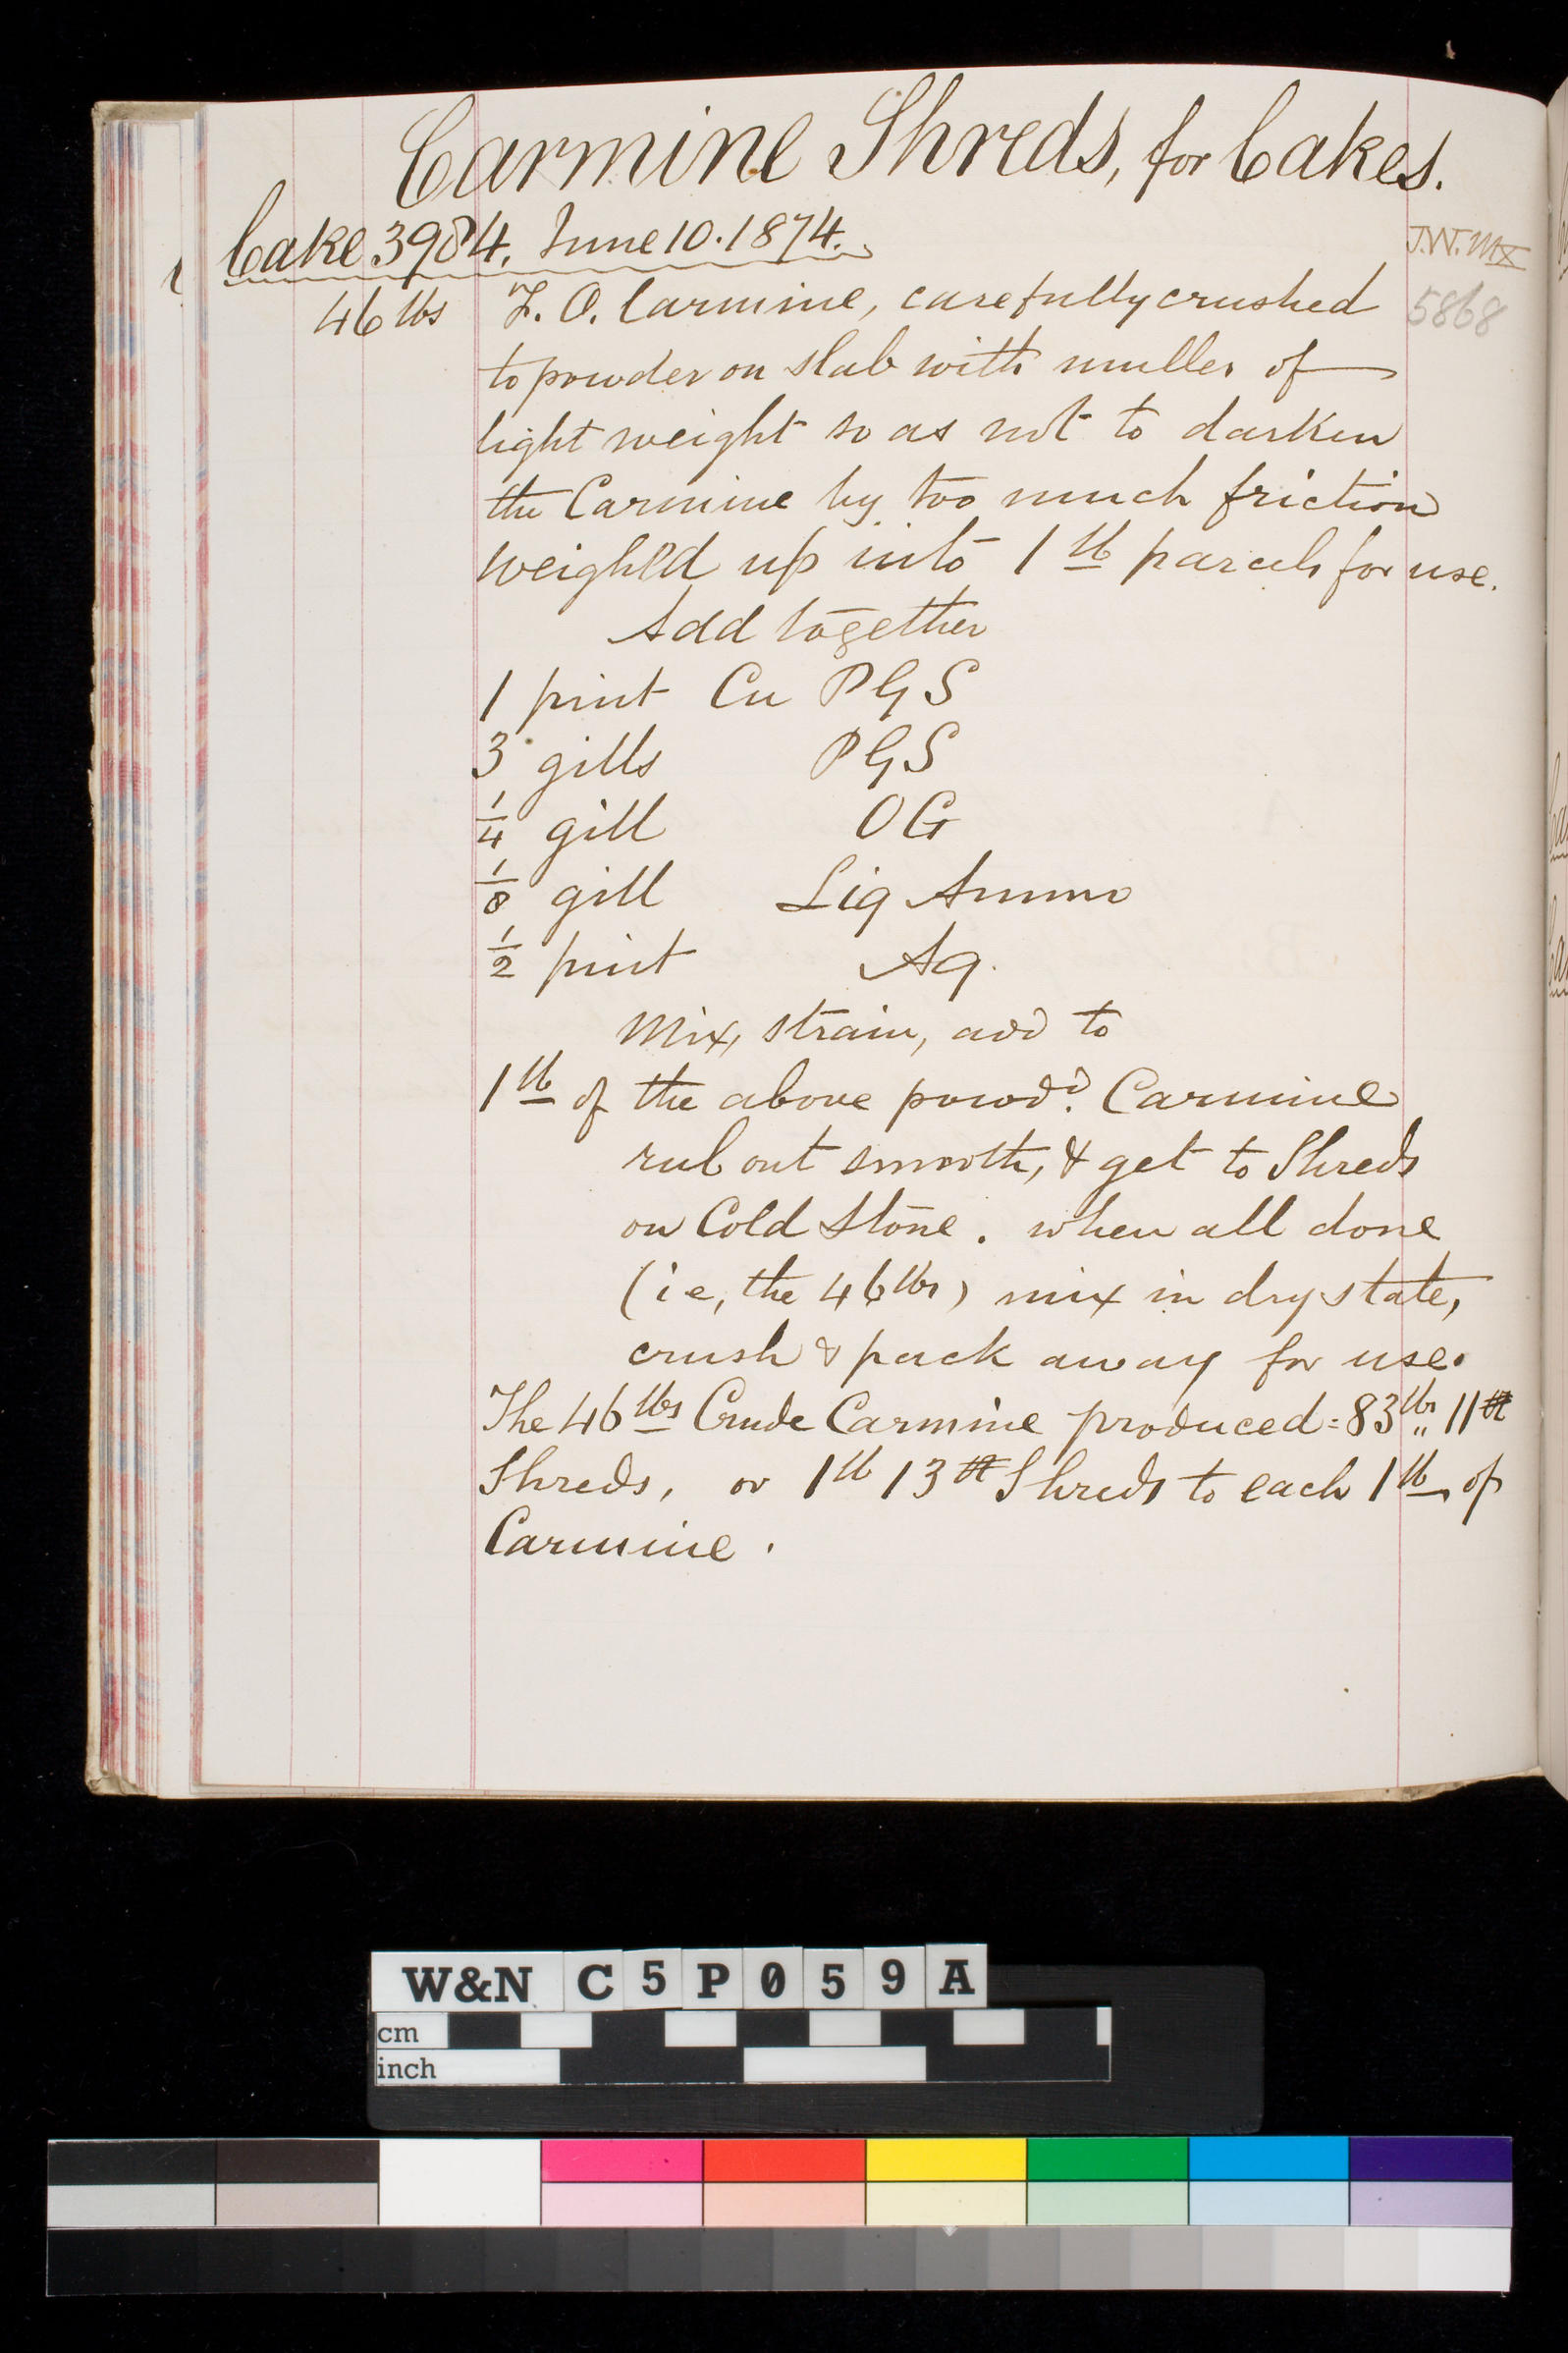 Carmine Shreds, for Cakes.
Cake 3984. June 10. 1874.
J.W. MX
5868
46 lbs Z. O. Carmine, carefully crushed
to powder on slab with muller of
light weight so as not to darken
the Carmine by too much friction
weighed up into 1 lb parcels for use.
Add together
1 pint Cu PGS
3 gills PGS
1/4 gill OG
1/8 gill Liq Ammo
1/2 pint Aq.
Mix, strain, add to
1 lb of the above powdd. Carmine
rub out smooth, & get to Shreds
on Cold Stone. when all done
(ie, the 46 lbs) mix in dry state,
crush & pack away for use.
The 46 lbs Crude Carmine produced = 83 lbs 11
Shreds, or 1 lb 13 Shreds to each 1 lb of
Carmine.
W&N C5P059A
cm
inch